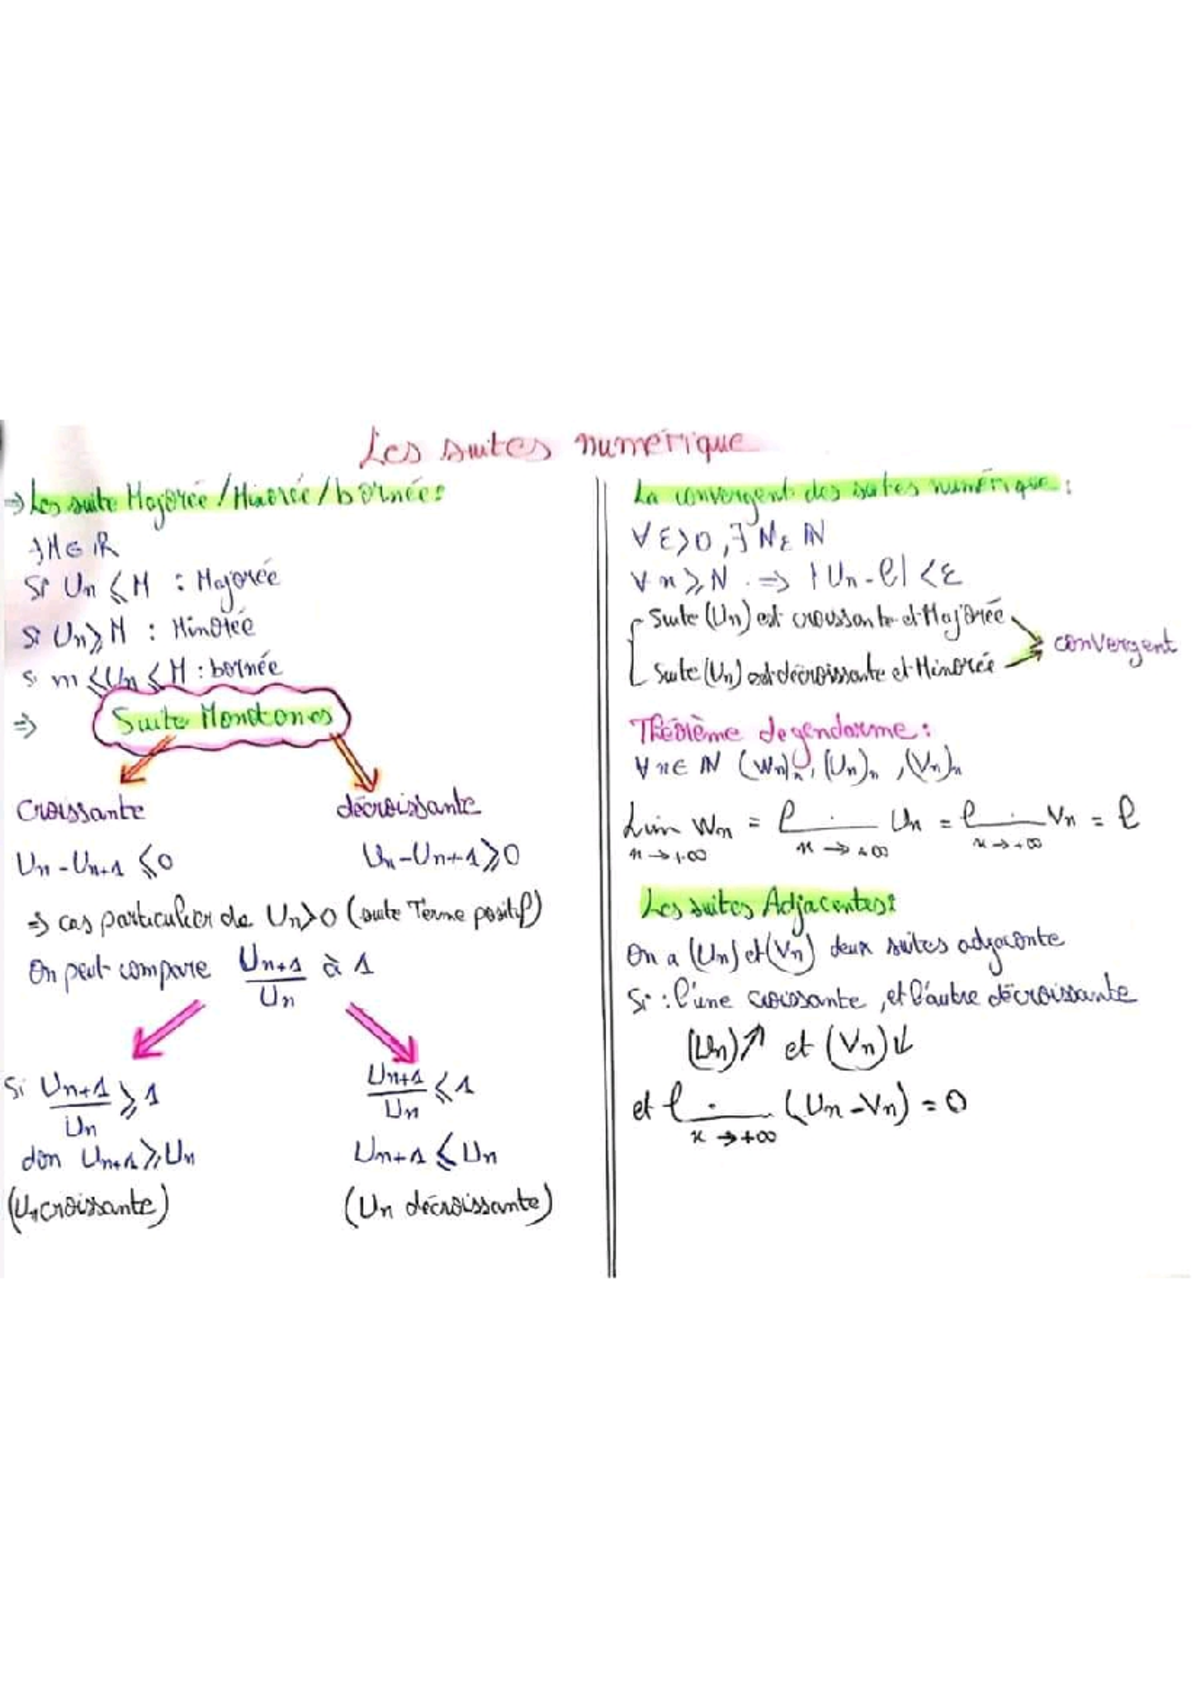 Les suites numérique
⇒ Les suite Majorée / Minorée / bornée :
∃ M ∈ ℝ
Si Un ⩽ M : Majorée
Si Un ⩾ M : Minorée
Si m ⩽ Un ⩽ M : bornée
⇒ Suite Monotones
croissante décroissante
Un - Un+1 ⩽ 0 Un - Un+1 ⩾ 0
⇒ cas particulier de Un > 0 (suite Terme positif)
On peut compare Un+1/Un à 1
Si Un+1/Un ⩾ 1 Un+1/Un ⩽ 1
don Un+1 ⩾ Un Un+1 ⩽ Un
(Un croissante) (Un décroissante)
La convergent des suites numérique :
∀ ε > 0 , ∃ N ∈ ℕ
∀ n ⩾ N ⇒ | Un - l | < ε
Suite (Un) est croissante et Majorée
convergent
Suite (Un) est décroissante et Minorée
Théorème de gendarme :
∀ n ∈ ℕ (Wn)n , (Un)n , (Vn)n
Lim n→+∞ Wn = l n→+∞ Un = l n→+∞ Vn = l
Les suites Adjacentes :
On a (Un) et (Vn) deux suites adjaconte
Si : l'une croissante , et l'autre décroissante
(Un) ↗ et (Vn) ↓
et l n→+∞ (Un - Vn) = 0